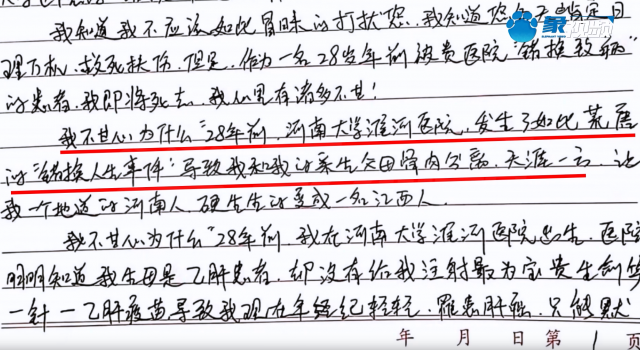 我知道我不应该如此冒昧的打扰您,我知道您每天肯定日
理万机,救死扶伤,但是,作为一名28岁年前被贵医院“错换致病”
的患者,我即将死去,我心里有诸多不甘!
我不甘心为什么“28年前,河南大学淮河医院,发生了如此荒唐
的“错换人生事件”导致我和我的亲生父母骨肉分离,天涯一方,让
我一个地道的河南人,硬生生的变成一名江西人。
我不甘心为什么“28年前,我在河南大学淮河医院出生,医院
明明知道我生母是乙肝患者,却没有给我注射最为宝贵生命的
一针一乙肝疫苗导致我现在年纪轻轻,罹患肝癌,只能默
年 月 日 第 1 页